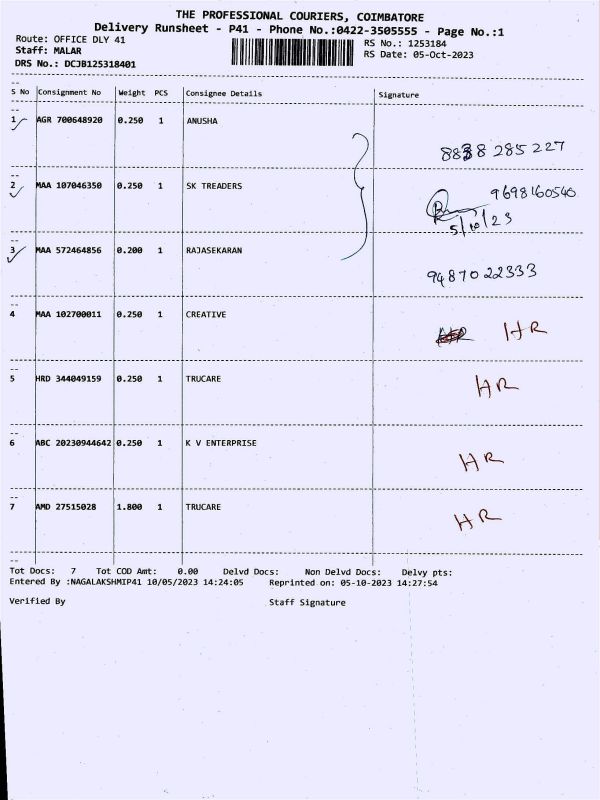 THE PROFESSIONAL COURIERS, COIMBATORE
Delivery Runsheet - P41 - Phone No.:0422-3505555 - Page No.:1
Route: OFFICE DLY 41 RS No.: 1253184
Staff: MALAR RS Date: 05-Oct-2023
DRS No.: DCJB125318401
S No Consignment No Weight PCS Consignee Details Signature
1 AGR 700648920 0.250 1 ANUSHA
8838 285 227
2 MAA 107046350 0.250 1 SK TREADERS 9698160540
5/10/23
3 MAA 572464856 0.200 1 RAJASEKARAN
94870 22333
4 MAA 102700011 0.250 1 CREATIVE
HR
5 HRD 344049159 0.250 1 TRUCARE HR
6 ABC 20230944642 0.250 1 K V ENTERPRISE
HR
7 AMD 27515028 1.800 1 TRUCARE HR
Tot Docs: 7 Tot COD Amt: 0.00 Delvd Docs: Non Delvd Docs: Delvy pts:
Entered By :NAGALAKSHMIP41 10/05/2023 14:24:05 Reprinted on: 05-10-2023 14:27:54
Verified By Staff Signature